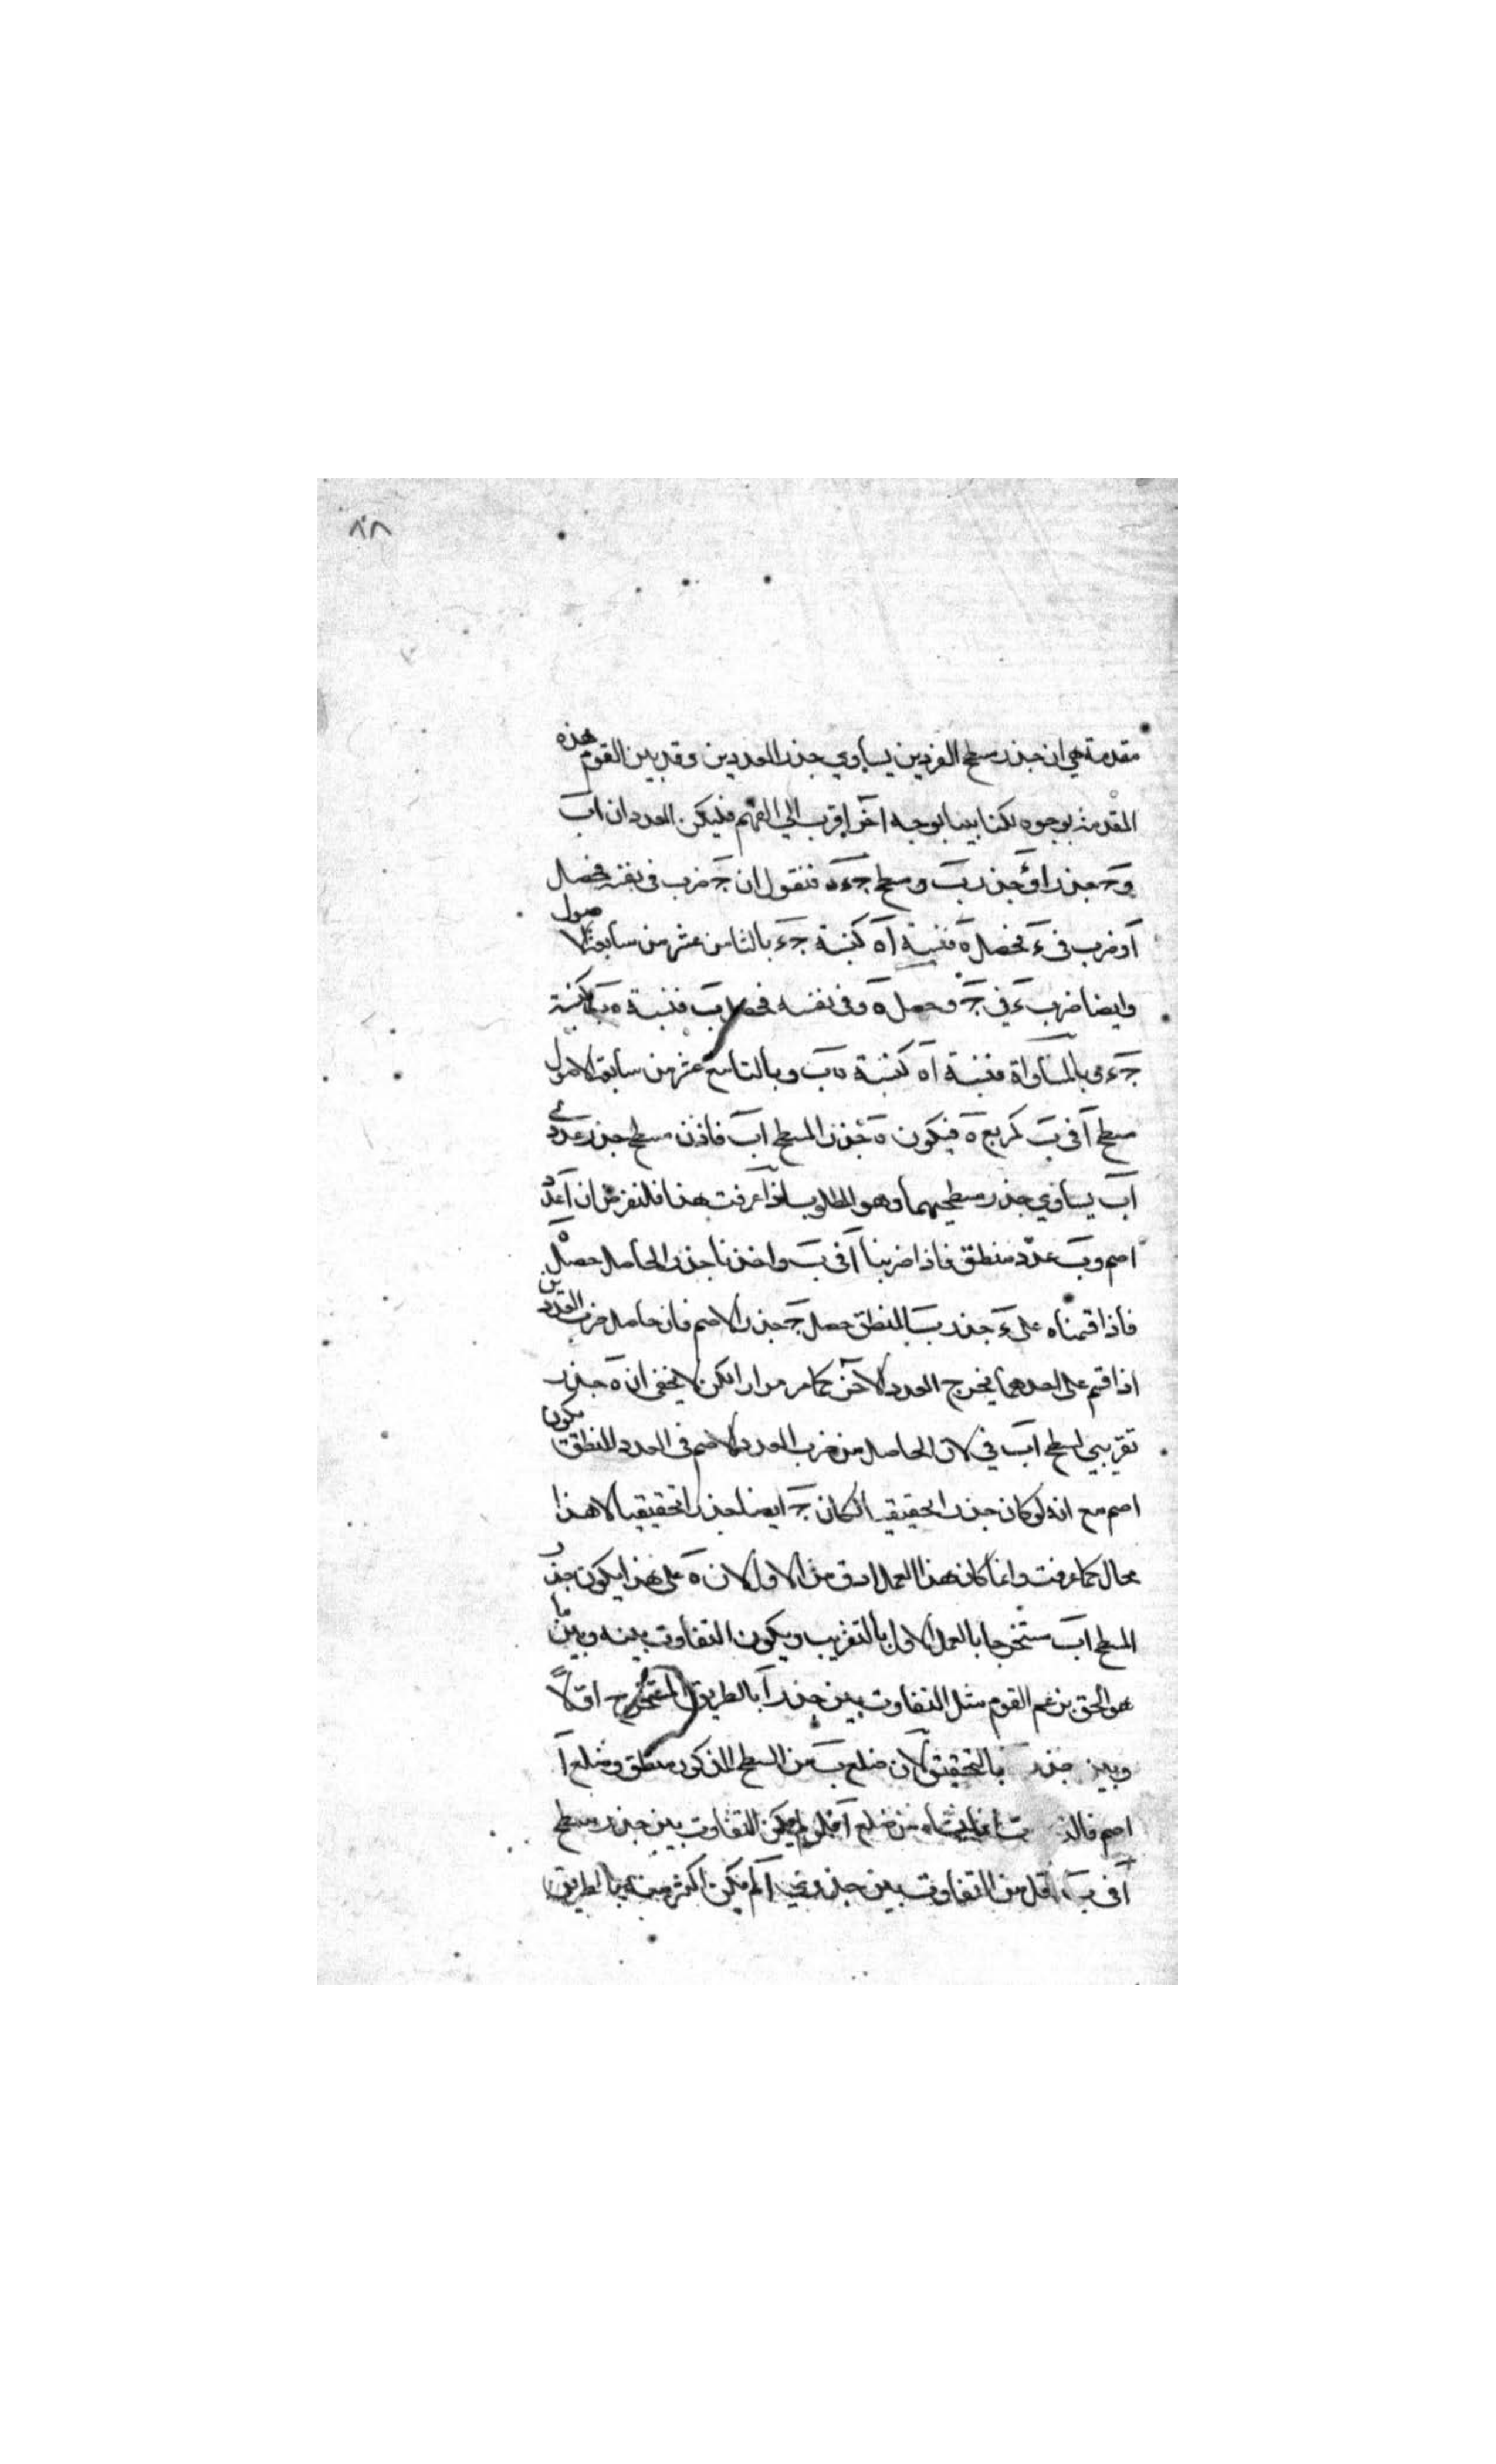 ٨٠٨
مقدمة هي ان جذر سطح العددين يساوي جذر العددين وقد بين القوم هذه
المقدمة بوجوه لكنا بينا بوجه آخر اقرب الى الفهم فليكن العددان اب
وجـ جذر ا وء جذر ب وسطح جـ ء ه فنقول ان جـ ضرب في نفسه فحصل
آ وضرب في ء فحصل ه فنسبة آ ه كنسبة جـ ء بالثامن عشر من سابعة الاصول
وايضا ضرب ء في جـ وحصل ه وفي نفسه فحصل ب فنسبة ه ب كنسبة
جـ ء فبالمساواة فنسبة آ ه كنسبة ه ب وبالتاسع عشر من سابعة الاصول
مسطح آ في ب كمربع ه فيكون ه جذر المسطح اب فاذن مسطح جذر عددي
اب يساوي جذر مسطحيهما وهو المطلوب اذا عرفت هذا فلنفرض ان آ عدد
اصم وب عدد منطق فاذا ضربنا آ في ب واخذنا جذر الحاصل حصل ه
فاذا قسمناه على ء جذر ب المنطق حصل جـ جذر الاصم فان حاصل ضرب العددين
اذا قسم على احدهما يخرج العدد الآخر كما مر مرارا لكن لا يخفى ان ه جذر
تقريبي لسطح اب في لان الحاصل من ضرب العدد الاصم في العدد المنطق يكون
اصم مع انه لو كان جذرا حقيقيا لكان جـ ايضا جذرا تحقيقيا لا هذا
محال كما عرفت وانما كان هذا العمل ادق من الاول لان ه على هذا يكون جذر
المسطح اب مستخرجا بالعمل الاول بالتقريب ويكون التفاوت بينه وبين ما
هو الحق بزعم القوم مثل التفاوت بين جذر آ بالطريق المستخرج اقلا
وبين جذر بالتحقيق لان ضلع ب من السطح المذكور منطق وضلع آ
اصم من ضلع آ فلو لم يكن التفاوت بين جذر مسطح
آ في ب اقل من التفاوت بين جذري آ لم يكن اكثر منه بالطريق